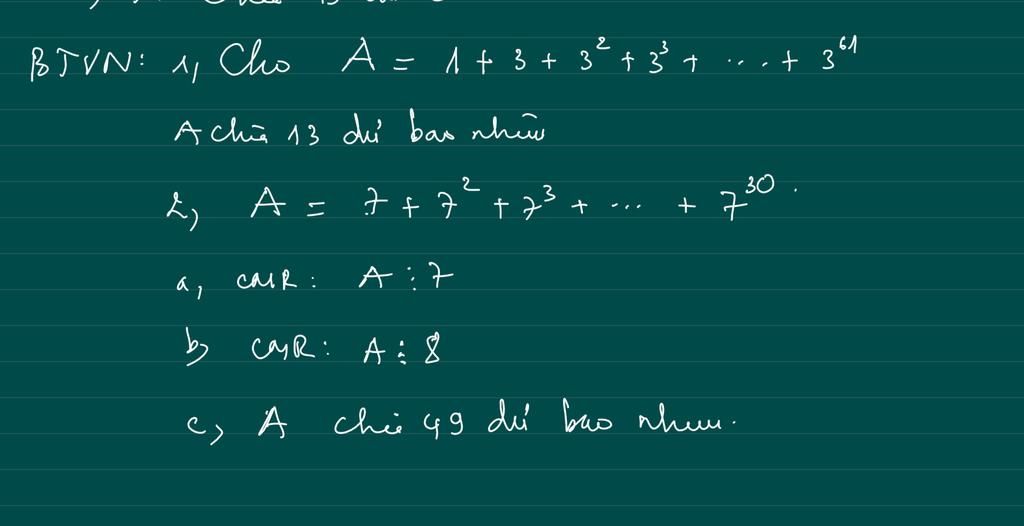 BTVN: 1, Cho A = 1 + 3 + 3² + 3³ + ... + 3⁶¹
A chia 13 dư bao nhiêu
2, A = 7 + 7² + 7³ + ... + 7³⁰.
a, CMR: A ⋮ 7
b, CMR: A ⋮ 8
c, A chia 49 dư bao nhiêu.